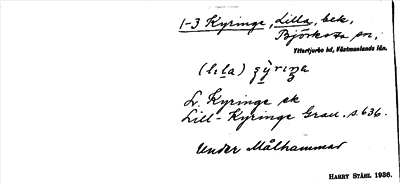 1-3 Kyringe, Lilla, bek.
Björksta sn,
Yttertjurbo hd, Västmanlands län.
(lıla)
Kyringe ek
Lill-Kyringe Grau. s. 636.
Under Målhammar
HARRY STÅHL 1936.